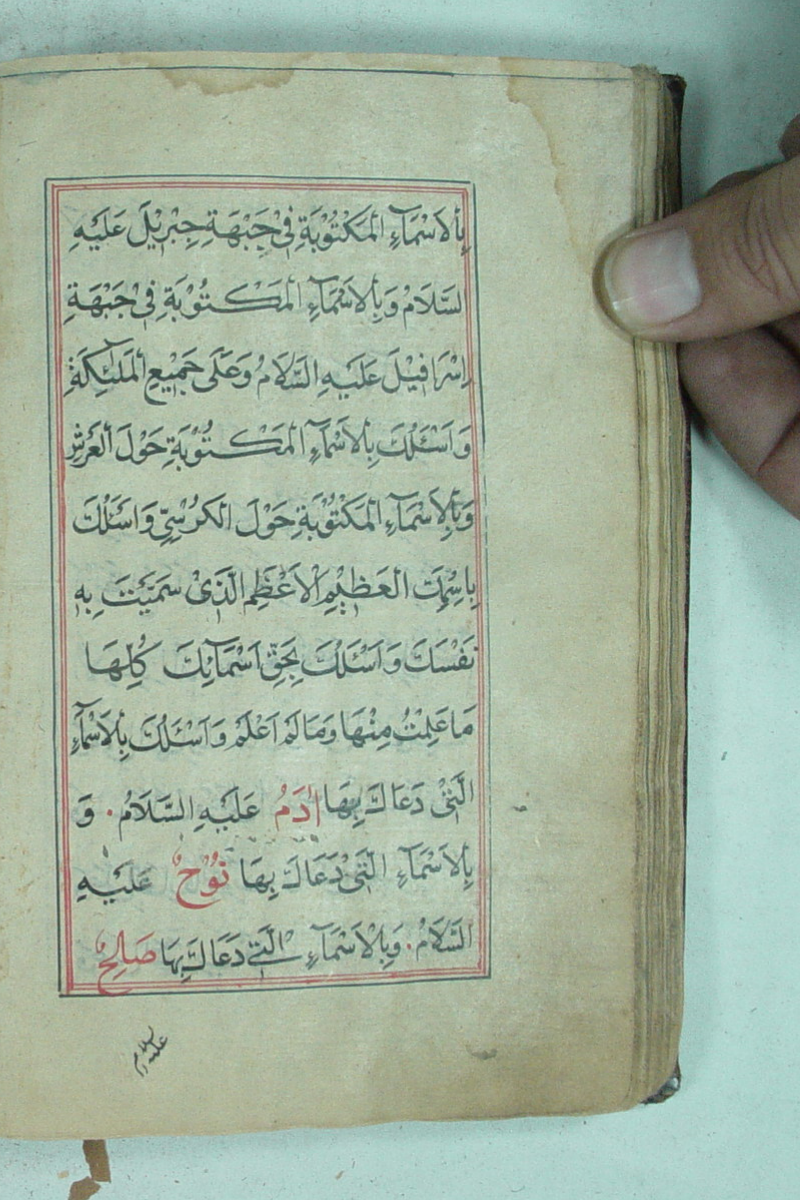 بِالْاَسْمَآءِ الْمَكْتُوْبَةِ فِىْ جَبْهَةِ جِبْرِيْلَ عَلَيْهِ
السَّلَامُ وَبِالْاَسْمَآءِ الْمَكْتُوْبَةِ فِىْ جَبْهَةِ
اِسْرَافِيْلَ عَلَيْهِ السَّلَامُ وَعَلٰى جَمِيْعِ الْمَلٰئِكَةِ
وَاَسْئَلُكَ بِالْاَسْمَآءِ الْمَكْتُوْبَةِ حَوْلَ الْعَرْشِ
وَبِالْاَسْمَآءِ الْمَكْتُوْبَةِ حَوْلَ الْكُرْسِىِّ وَاَسْئَلُكَ
بِاسْمِكَ الْعَظِيْمِ الْاَعْظَمِ الَّذِىْ سَمَّيْتَ بِهٖ
نَفْسَكَ وَاَسْئَلُكَ بِحَقِّ اَسْمَآئِكَ كُلِّهَا
مَا عَلِمْتُ مِنْهَا وَمَا لَمْ اَعْلَمْ وَاَسْئَلُكَ بِالْاَسْمَآءِ
الَّتِىْ دَعَاكَ بِهَا اٰدَمُ عَلَيْهِ السَّلَامُ. وَ
بِالْاَسْمَآءِ الَّتِىْ دَعَاكَ بِهَا نُوْحٌ عَلَيْهِ
السَّلَامُ. وَبِالْاَسْمَآءِ الَّتِىْ دَعَاكَ بِهَا صَالِحٌ
عليه السلام